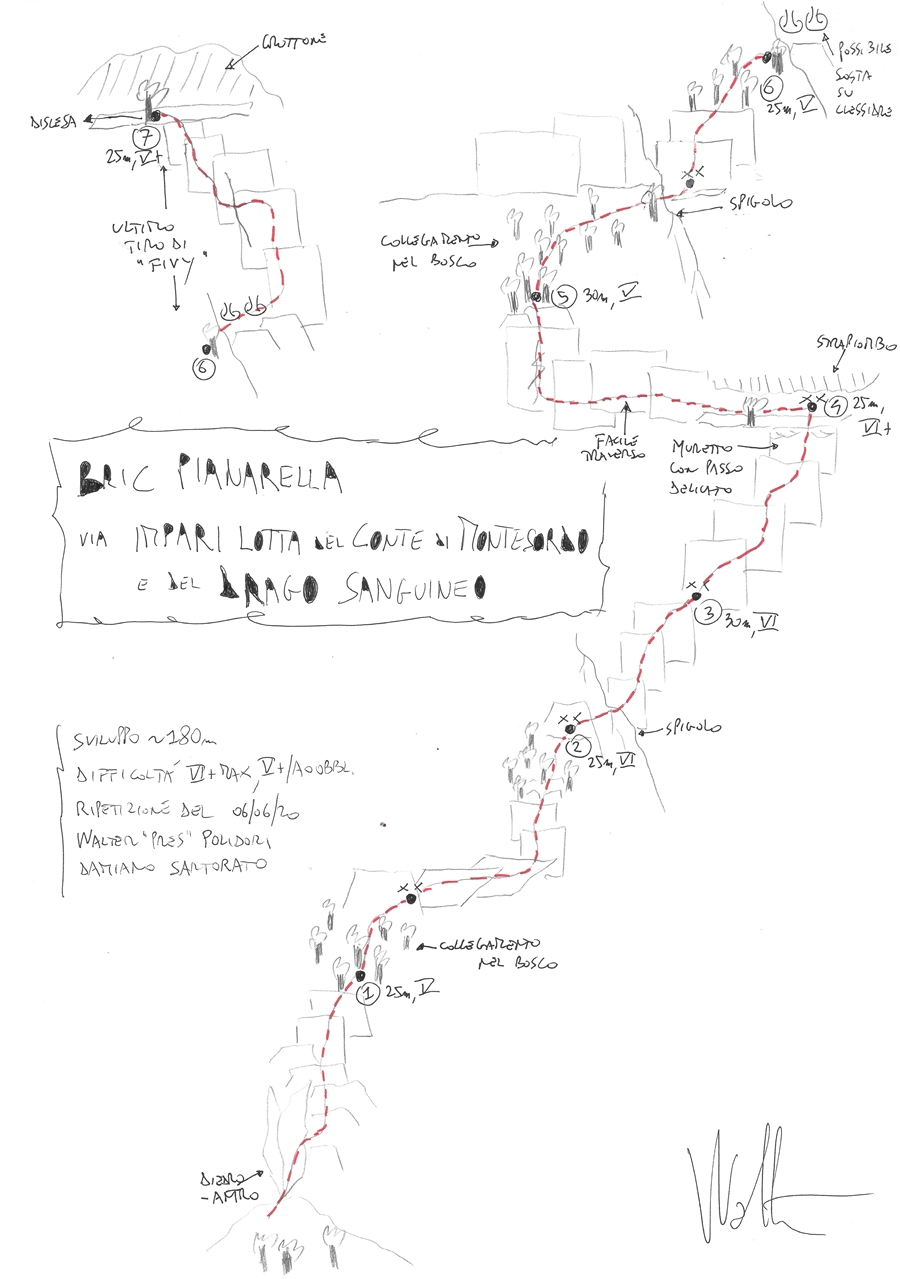 GROTTONE
DISCESA
7
25m, V+
ULTIMO
TIRO DI
"FIVY"
6
POSSIBILE
SOSTA
SU
CLESSIDRE
6
25m, V
SPIGOLO
COLLEGAMENTO
NEL BOSCO
5 30m, V
STRAPIOMBO
4 25m,
VI+
FACILE
TRAVERSO
MURETTO
CON PASSO
DELICATO
BRIC PIANARELLA
VIA IMPARI LOTTA DEL CONTE DI MONTESORDO
E DEL DRAGO SANGUINEO
3 30m, VI
SPIGOLO
2
25m, VI
SVILUPPO ~180m
DIFFICOLTÁ VI+ MAX, V+/A0 OBBL.
RIPETIZIONE DEL 06/06/20
WALTER "PRES" POLIDORI
DAMIANO SARTORATO
COLLEGAMENTO
NEL BOSCO
1 25m, V
DIEDRO
-ANTRO